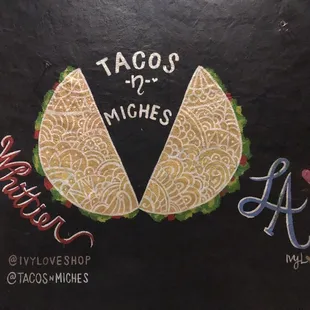 TACOS
-n-
MICHES
Whittier
LA
@IVYLOVESHOP
@TACOSNMICHES